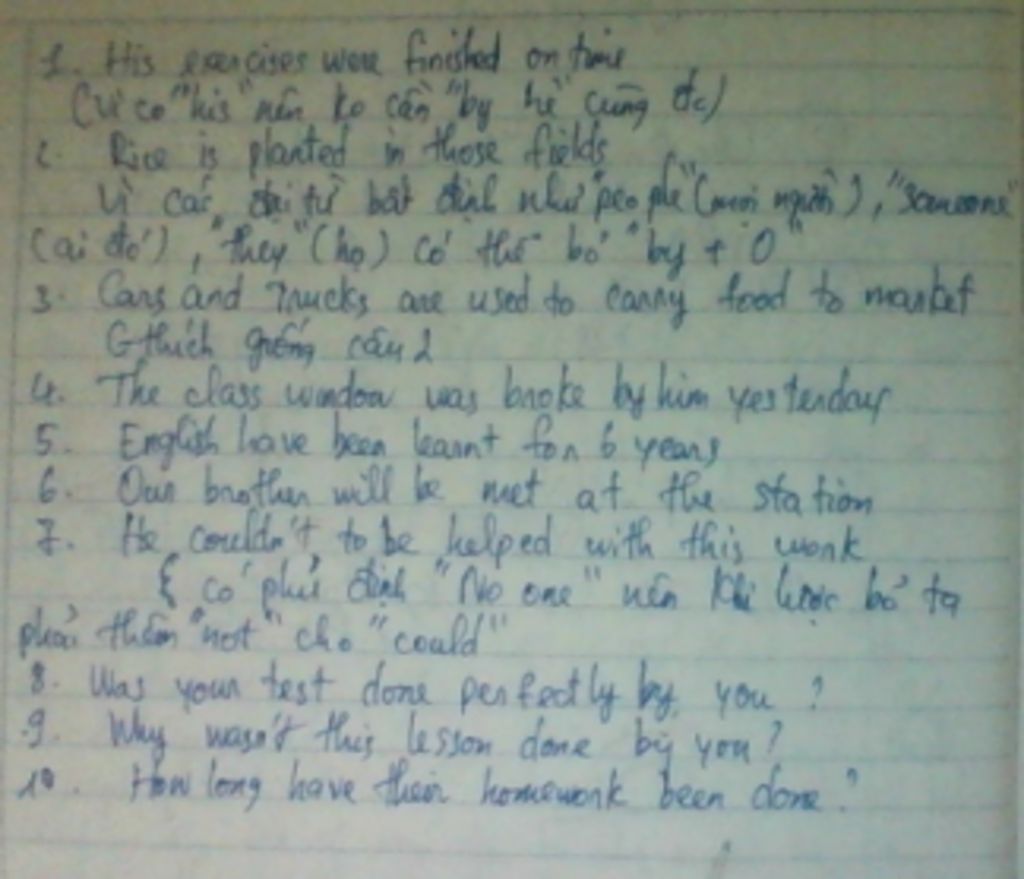 1. His exercises were finished on time
(Vì có "his" nên ko cần "by he" cũng đc)
2. Rice is planted in those fields
Vì các đại từ bất định như "people" (mọi người), "someone"
(ai đó), "they" (họ) có thể bỏ "by + O"
3. Cars and Trucks are used to carry food to market
Gthích giống câu 2
4. The class window was broke by him yesterday
5. English have been learnt for 6 years
6. Our brother will be met at the station
7. He couldn't to be helped with this work
có phủ định "No one" nên khi lược bỏ ta
phải thêm "not" cho "could"
8. Was your test done perfectly by you ?
9. Why wasn't this lesson done by you ?
10. How long have their homework been done ?